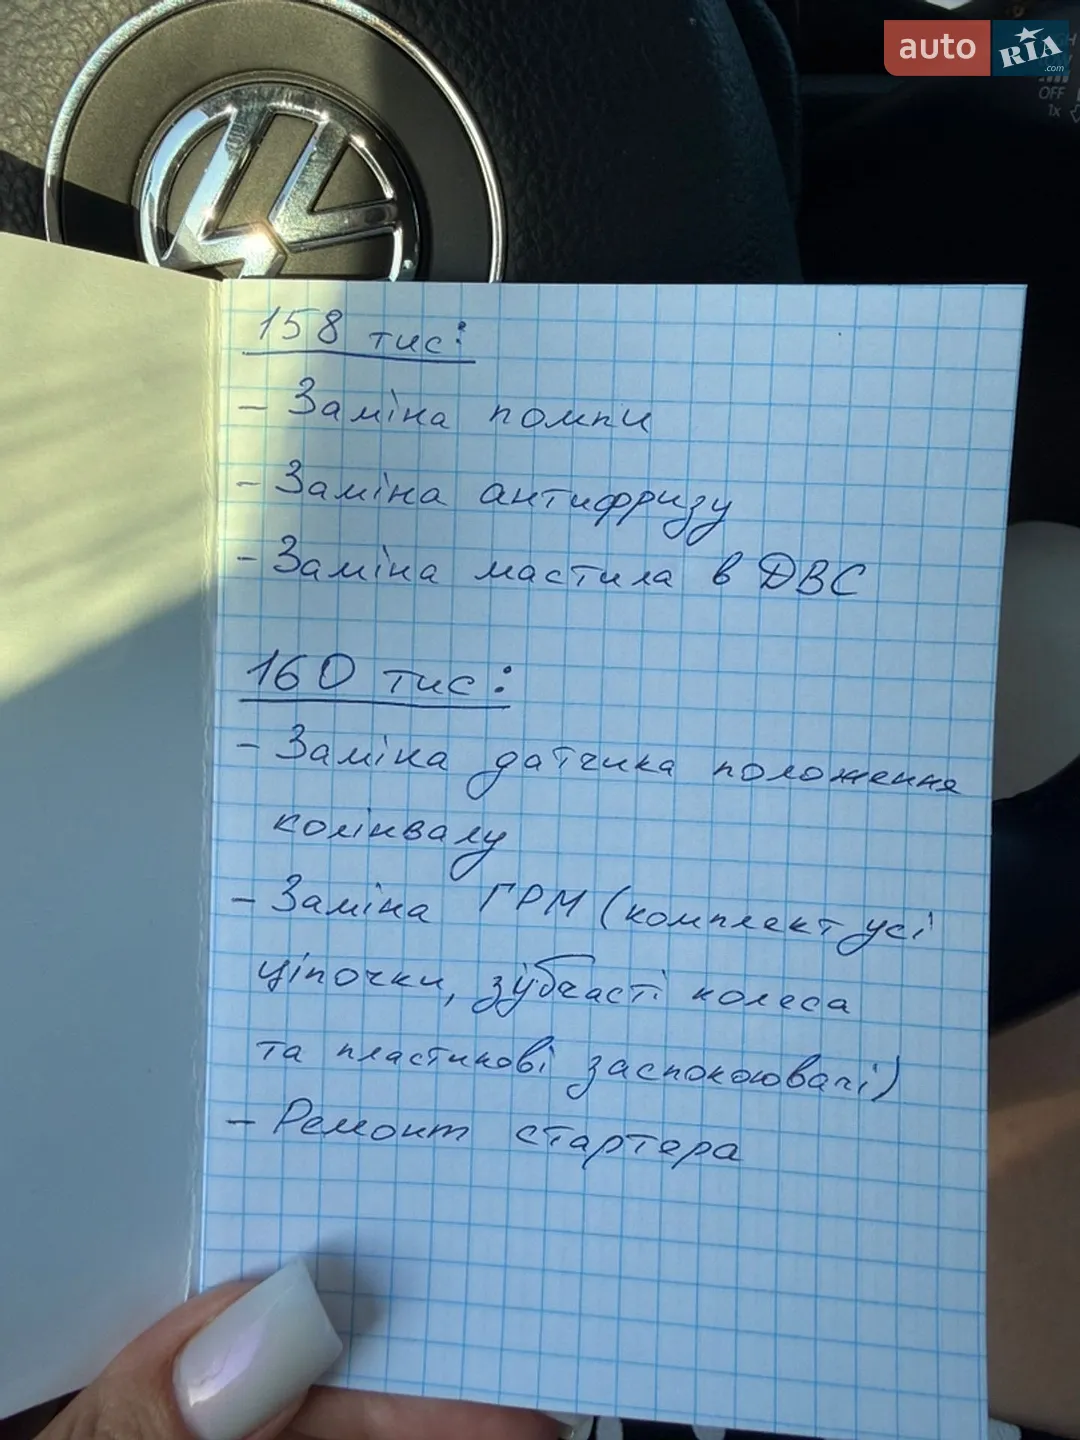 auto RIA .com
OFF
1x
158 тис:
- Заміна помпи
- Заміна антифризу
- Заміна мастила в ДВС
160 тис:
- Заміна датчика положення
колінвалу
- Заміна ГРМ (комплект усі
ціпочки, зубчасті колеса
та пластикові заспокоювачі)
- Ремонт стартера